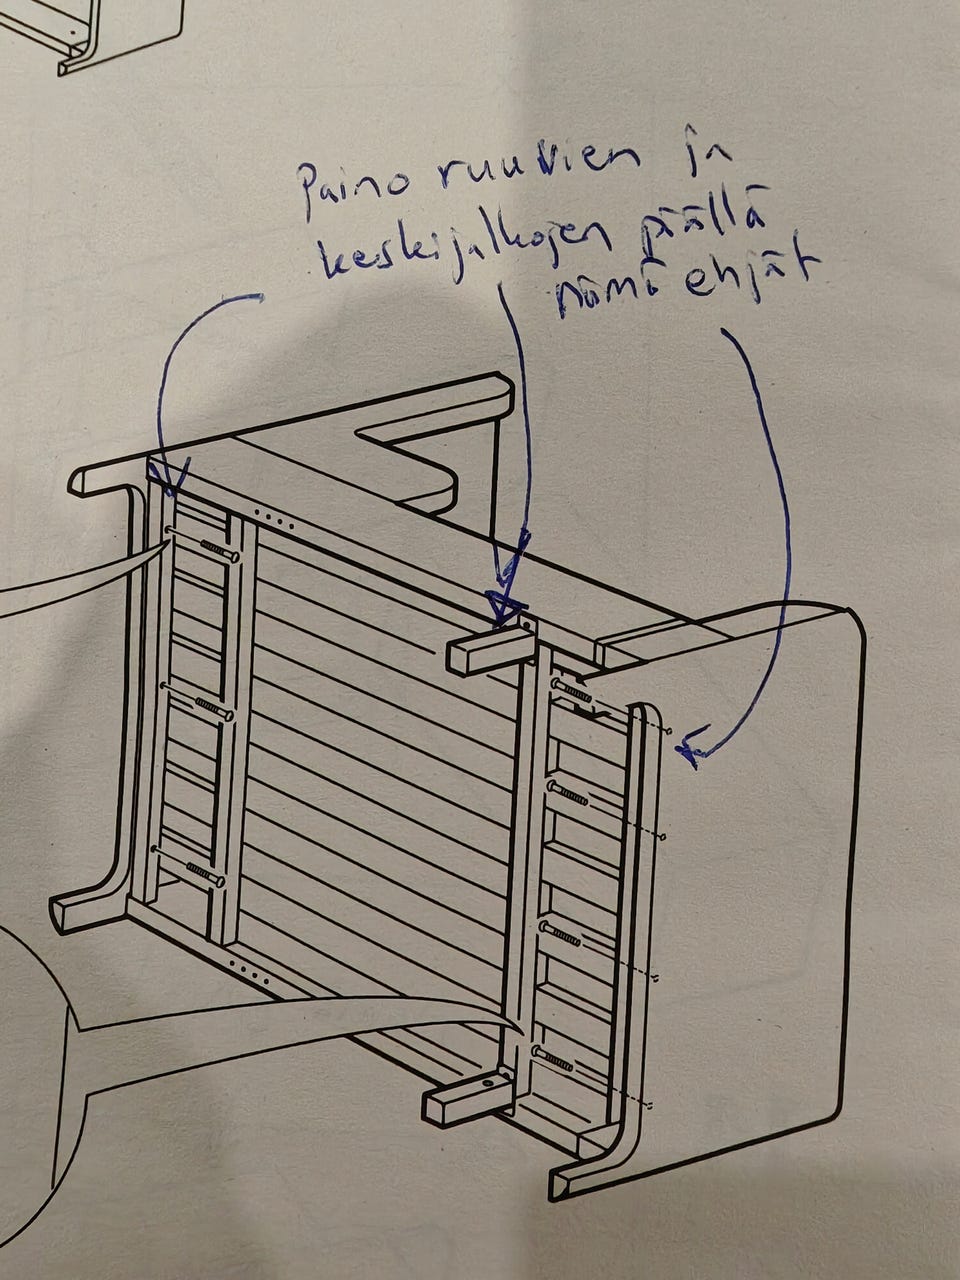 Paino ruuvien ja
keskijalkojen päällä
nämä ehjät